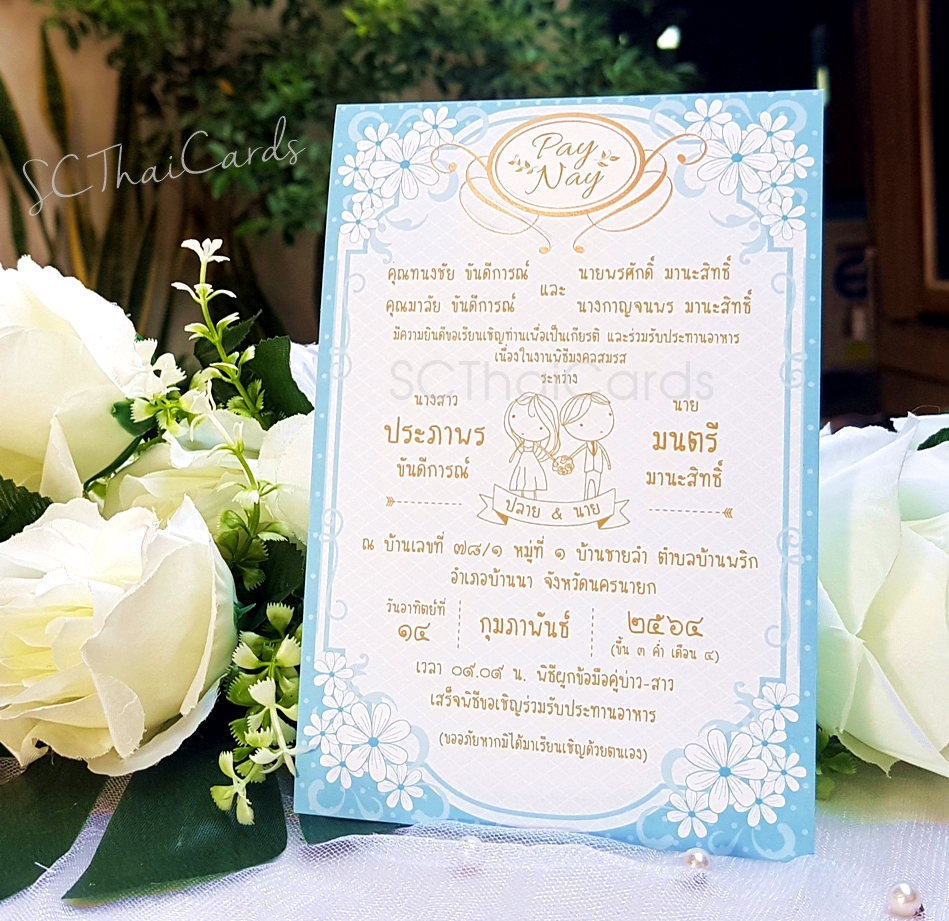 SCThaiCards
Pay
Nay
คุณทนงชัย ขันดีการณ์ และ นายพรศักดิ์ มานะสิทธิ์
คุณมาลัย ขันดีการณ์ นางกาญจนพร มานะสิทธิ์
มีความยินดีขอเรียนเชิญท่านเพื่อเป็นเกียรติ และร่วมรับประทานอาหาร
เนื่องในงานพิธีมงคลสมรส
ระหว่าง
SCThaiCards
นางสาว นาย
ประภาพร มนตรี
ขันดีการณ์ มานะสิทธิ์
ปลาย & นาย
ณ บ้านเลขที่ ๗๘/๑ หมู่ที่ ๑ บ้านชายลำ ตำบลบ้านพริก
อำเภอบ้านนา จังหวัดนครนายก
วันอาทิตย์ที่
๑๔ กุมภาพันธ์ ๒๕๖๔
(ขึ้น ๓ ค่ำ เดือน ๔)
เวลา ๐๙.๐๙ น. พิธีผูกข้อมือคู่บ่าว-สาว
เสร็จพิธีขอเชิญร่วมรับประทานอาหาร
(ขออภัยหากมิได้มาเรียนเชิญด้วยตนเอง)